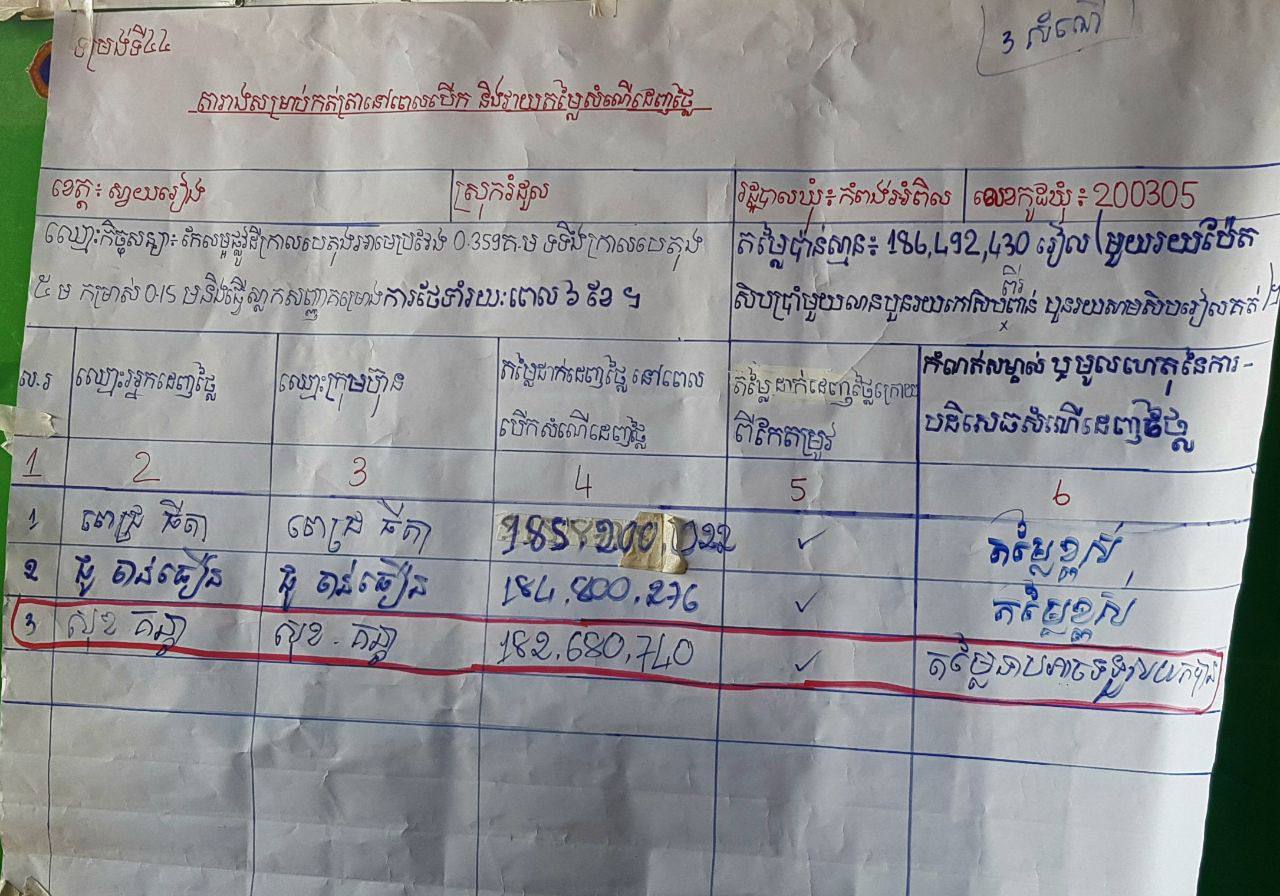 ទម្រង់ទី៤៤
3 សំណើ
តារាងសម្រាប់កត់ត្រានៅពេលបើក និងវាយតម្លៃសំណើដេញថ្លៃ
ខេត្ត៖ ស្វាយរៀង
ស្រុករំដួល
រដ្ឋបាលឃុំ៖ កំពង់អំពិល
លេខកូដឃុំ៖ 200305
ឈ្មោះកិច្ចសន្យា៖ កែលម្អផ្លូវដីក្រាលបេតុងអាមេប្រវែង 0.359គ.ម ទទឹងក្រាលបេតុង
៥ ម កម្រាស់ 0.15 ម និងធ្វើស្លាកសញ្ញាគម្រោងការថែទាំរយៈពេល ៦ ខែ ។
តម្លៃប៉ាន់ស្មាន៖ 186,492,430 រៀល (មួយរយប៉ែត
ពីរ
សិបប្រាំមួយលានបួនរយកៅសិបពាន់ បួនរយសាមសិបរៀលគត់)។
ល.រ
ឈ្មោះអ្នកដេញថ្លៃ
ឈ្មោះក្រុមហ៊ុន
តម្លៃដាក់ដេញថ្លៃ នៅពេល
បើកសំណើដេញថ្លៃ
តម្លៃដាក់ដេញថ្លៃក្រោយ
ពីកែតម្រូវ
កំណត់សម្គាល់ ឬមូលហេតុនៃការ-
បដិសេធសំណើដេញថ្លៃ
1 2 3 4 5 6
1 ពេជ្រ ធីតា ពេជ្រ ធីតា 185.200.022 ✓ តម្លៃខ្ពស់
2 ជូ ចាន់ធឿន ជូ ចាន់ធឿន 184.800.276 ✓ តម្លៃខ្ពស់
3 សុខ គន្ធា សុខ . គន្ធា 182.680.740 ✓ តម្លៃទាបអាចទទួលយកបាន